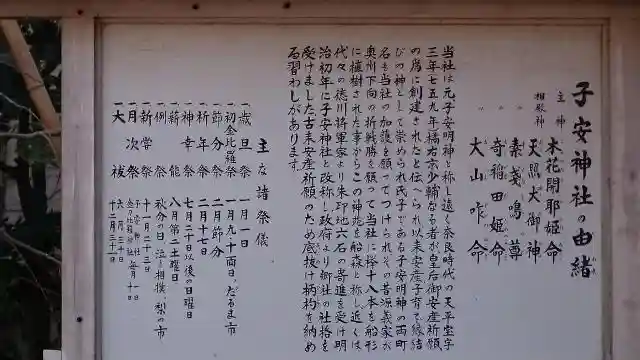 子安神社の由緒
主神 木花開耶姫命
相殿神 天照大御神
〃 素戔鳴尊
〃 奇稲田姫命
〃 大山咋命
当社は元子安明神と称し遠く奈良時代の天平宝字
三年七五九年橘右京少輔なる者が皇后御安産祈願
の為に創建されたと伝へられ以来安産子育て縁結
びの神として崇められ氏子である子安明神の両町
名も当社の加護を願ってつけられその昔源義家が
奥州下向の折戦勝を願って当社に欅十八本を船形
に植樹された事からこの神苑を船森と称し近くは
代々の徳川将軍家より朱印地六石の寄進を受け明
治初年に子安神社と改称し政府より郷社の社格を
受けました古来安産祈願のため底抜け柄杓を納め
る習わしがあります。
主な諸祭儀
一歳旦祭 一月一日
一初金比羅祭 一月九十両日、だるま市
一節分祭 二月節分
一祈年祭 二月十七日
一神幸祭 七月二十日以後の日曜日
一薪能 八月第二土曜日
一例祭 秋分の日 泣き相撲、梨の市
一新嘗祭 十一月二十三日
一月次祭 金刀比羅神社 毎月十日
一大祓 六月三十日 十二月三十一日